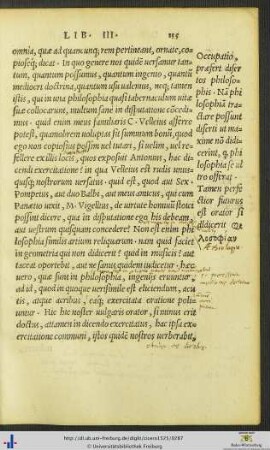 LIB. III. 215
omnia, quæ ad quamcunq; rem pertineant, ornate, co-
pioseq́; dicat. In quo genere nos quidē versamur tan-
tum, quantum possumus, quantum ingenio, quantū
mediocri doctrina, quantum usu valemus, neq; tamen
istis, qui in una philosophia quasi tabernaculum vitæ
suæ collocarunt, multum sane in disputatione cōcedi-
mus. quid enim meus familiaris C. Velleius afferre
potest, quamobrem voluptas sit summum bonū, quod
ego non copiosius possim vel tutari, si velim, vel re-
fellere ex illis locis, quos exposuit Antonius, hac di-
cendi exercitatione: in qua Velleius est rudis unus-
quisq; nostrorum versatus. quid est, quod aut Sex.
Pompeius, aut duo Balbi, aut meus amicus, qui cum
Panætio vixit, M. Vigellius, de virtute hominū Stoici
possint dicere, qua in disputatione ego his debeam,
aut vestrum quisquam concedere? Non est enim phi
losophia similis artium reliquarum. nam quid faciet
in geometria qui non didicerit? quid in musicis? aut
taceat oportebit, aut ne sanus quidem iudicetur. hæc
vero, quæ sunt in philosophia, ingenijs eruuntur,
ad id, quod in quoque verisimile est eliciendum, acu-
tis, atque acribus, eaq́; exercitata oratione poliu
untur. Hic hic noster vulgaris orator, si minus erit
doctus, attamen in dicendo exercitatus, hac ipsa ex-
ercitatione communi, istos quidē nostros verberabit,
Occupatio,
præsert diser
tos philoso-
phos. Nā phi
losophiā tra
ctare possunt
diserti ut ma
xime nō didi
cerint, q́ phi
losophia se al
tro offirat:
Tamen perfe
ctior futurus
est orator si
didicerit
http://dl.ub.uni-freiburg.de/diglit/cicero1521/0287
© Universitätsbibliothek Freiburg